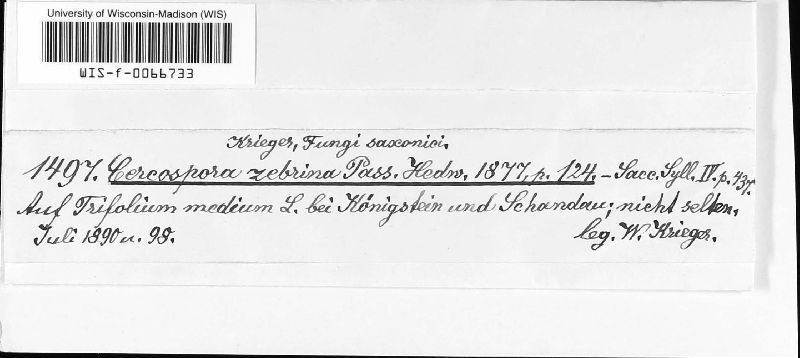 University of Wisconsin-Madison (WIS)
WIS-f-0066733
Krieger, Fungi saxonici.
1497. Cercospora zebrina Pass. Hedw. 1877, p. 124. – Sacc. Syll. IV. p. 437.
Auf Trifolium medium L. bei Königstein und Schandau; nicht selten.
Juli 1890 u. 98.
leg. W. Krieger.